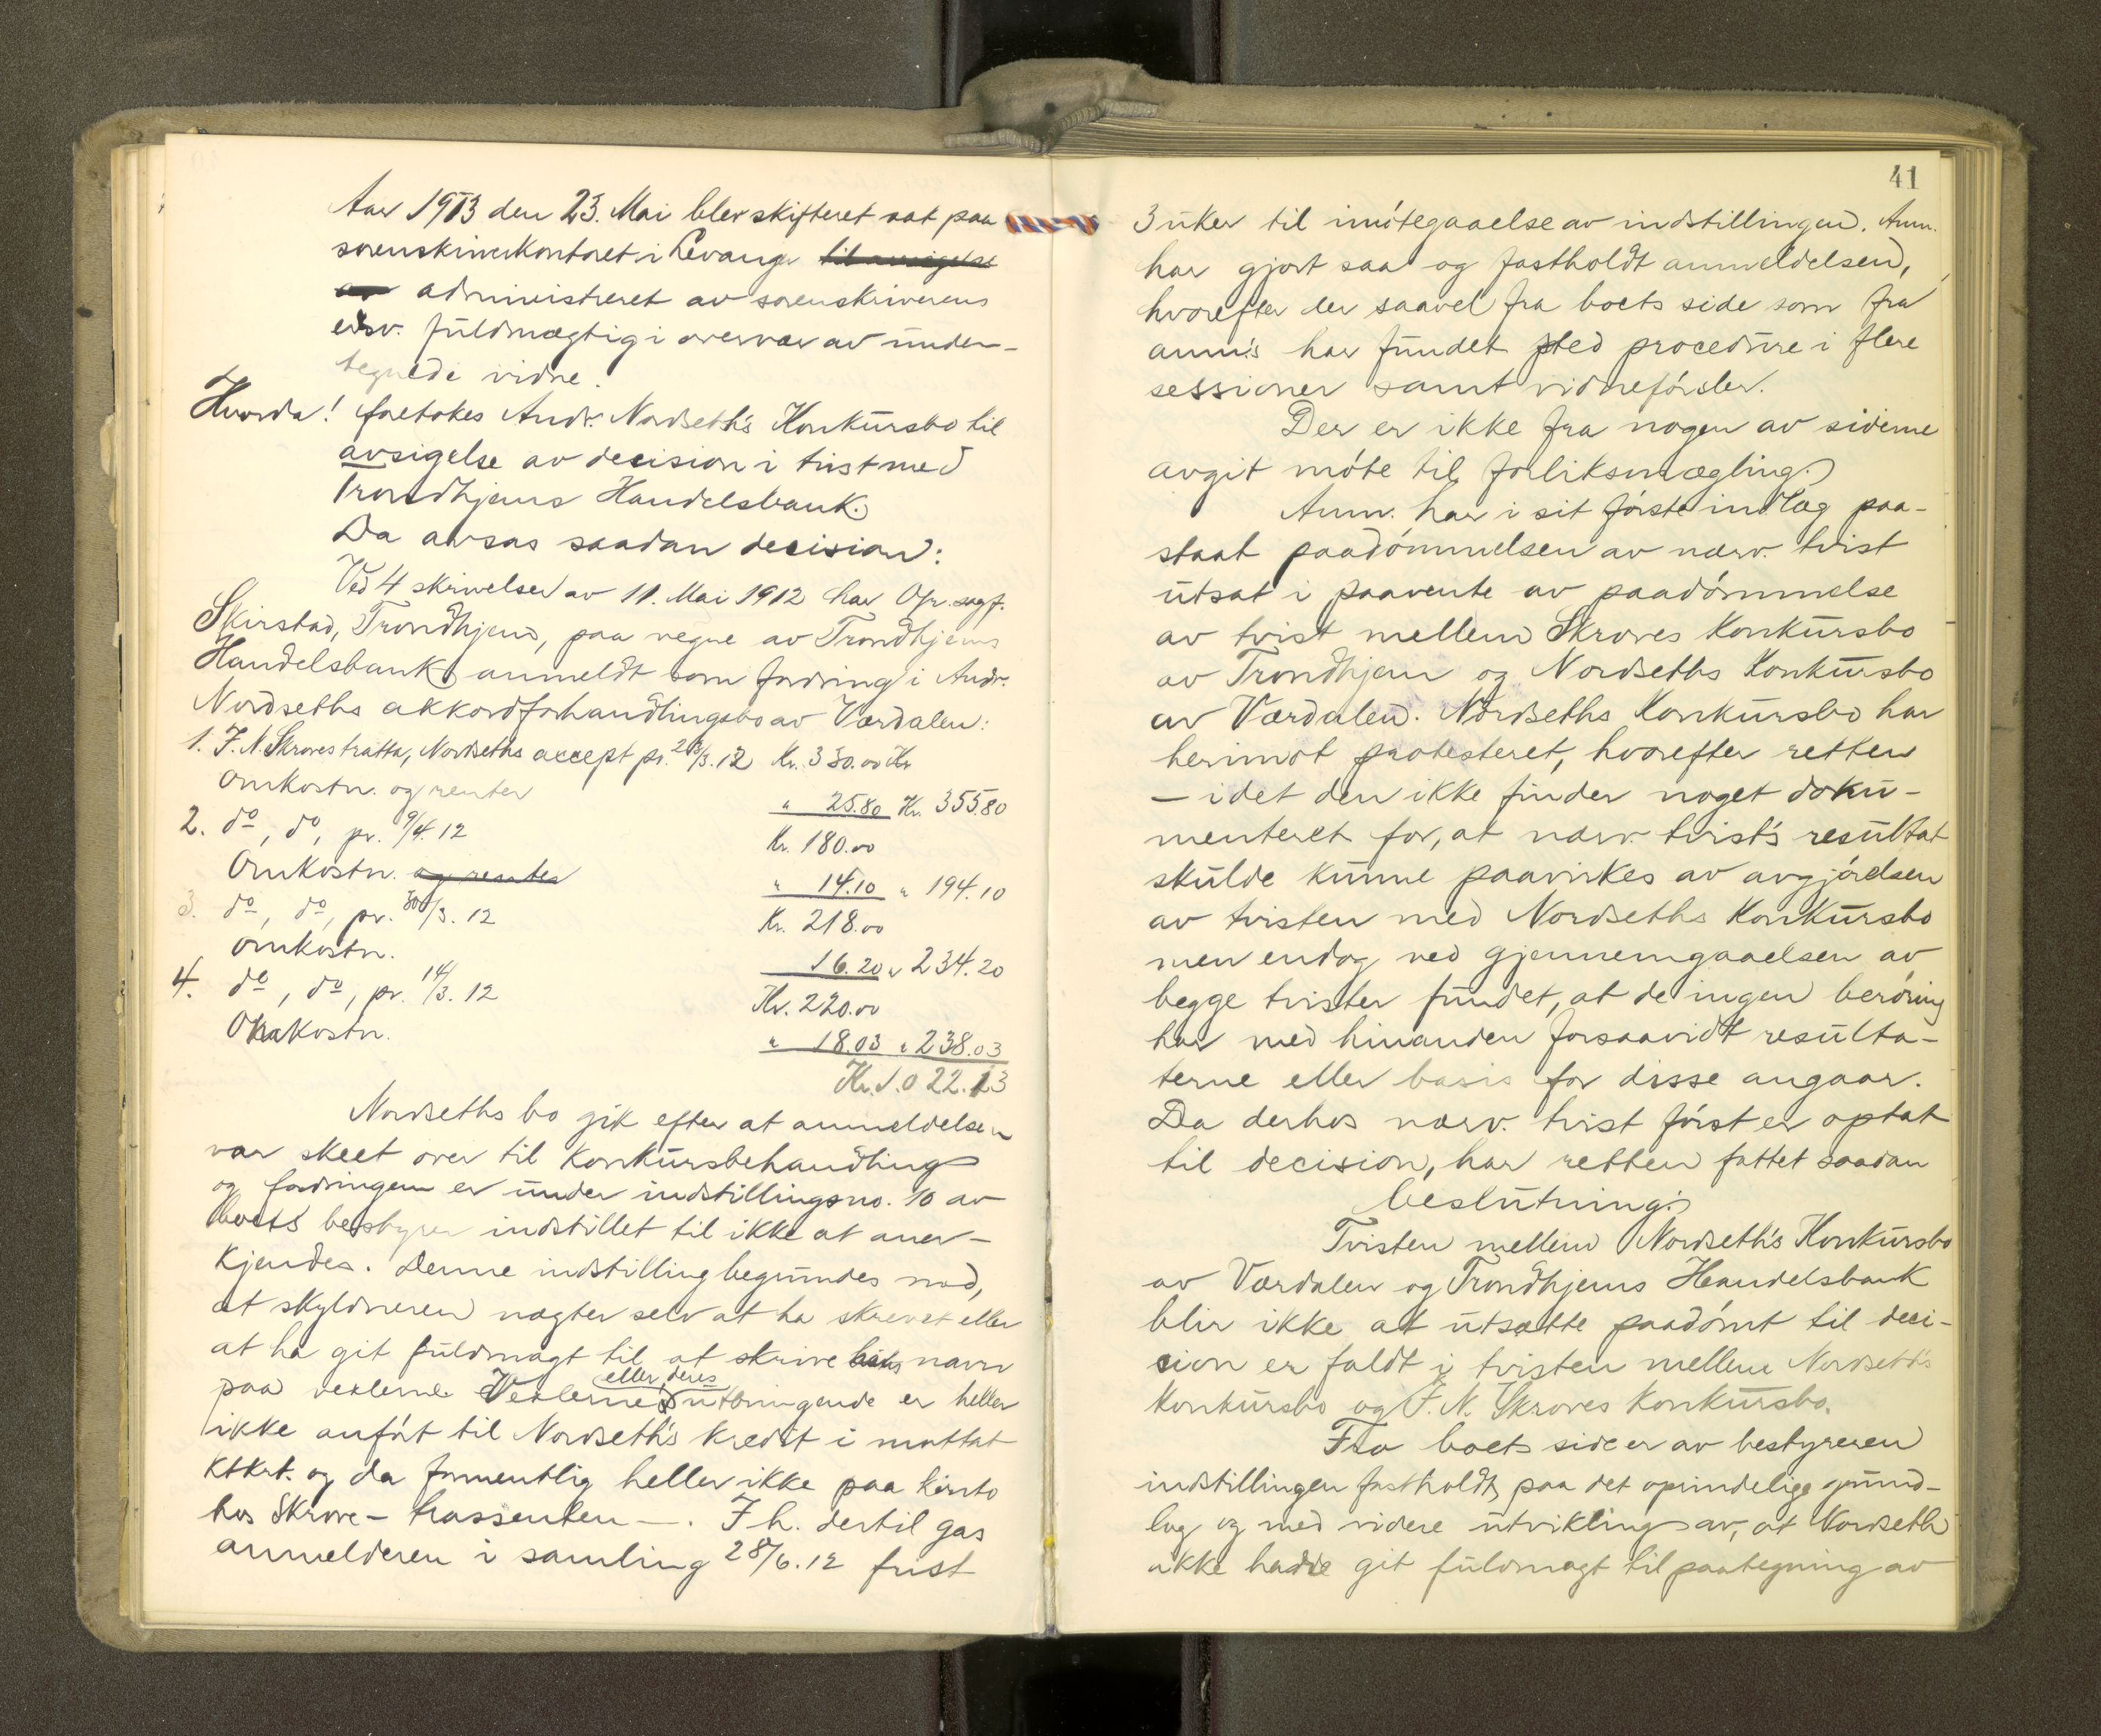 Aar 1913 den 23. Mai blev skifteret sat paa
sorenskriverkontoret i Levanger til avsigelse
av administreret av sorenskriverens
edsv. fuldmægtig i overvær av under-
tegnede vidne.
Hvorda! foretokes Andr. Nordseth's Konkursbo til
avsigelse av decision i tvist med
Trondhjems Handelsbank.
Da avsas saadan decision:
Ved 4 skrivelser av 11. Mai 1912 har Ofr. sagf.
Skirstad, Trondhjem, paa vegne av Trondhjems
Handelsbank anmeldt som fordring i Andr.
Nordseths akkordforhandlingsbo av Værdalen:
1. J. N. Skroves tratta, Nordseths accept pr. 23/3. 12 Kr. 330.00 Kr
Omkostn. og renter " 25.80 Kr. 355.80
2. do, do, pr. 9/4. 12 Kr. 180.00
Omkostn. og renter " 14.10 " 194.10
3. do, do, pr. 30/3. 12 Kr. 218.00
Omkostn. 16.20 " 234.20
4. do, do, pr. 14/3. 12 Kr. 220.00
Omkostn. " 18.03 " 238.03
Kr. 1.022.13
Nordseths bo gik efter at anmeldelsen
var skeet over til Konkursbehandling
og fordringen er under indstillingsno. 10 av
boets bestyrer indstillet til ikke at aner-
kjendes. Denne indstilling begrundes med,
at skyldneren nægter selv at ha skrevet eller
at ha git fuldmagt til at skrive hans navn
paa vexlerne. Vexlernes eller deres utbringende er heller
ikke anført til Nordseth's kredit i mottat
Ktkrt. og da formentlig heller ikke paa konto
hos Skrove - trassenten -. I h. dertil gas
anmelderen i samling 28/6. 12 frist
41
3 uker til imøtegaaelse av indstillingen. Anm.
har gjort saa og fastholdt anmeldelsen,
hvorefter der saavel fra boets side som fra
anm's har fundet sted procedure i flere
sessioner samt vidneførsler.
Der er ikke fra nogen av siderne
avgit møte til forliksmægling.
Anm. har i sit første indlæg paa-
staat paadømmelsen av nærv. tvist
utsat i paavente av paadømmelse
av tvist mellem Skroves Konkursbo
av Trondhjem og Nordseths Konkursbo
av Værdalen. Nordseths Konkursbo har
herimot protesteret, hvorefter retten
- idet den ikke finder noget doku-
menteret for, at nærv. tvist's resultat
skulde kunne paavirkes av avgjørelsen
av tvisten med Nordseths Konkursbo
men endog ved gjennemgaaelsen av
begge tvister fundet, at de ingen berøring
har med hinanden forsaavidt resulta-
terne eller basis for disse angaar.
Da derhos nærv. tvist først er optat
til decision, har retten fattet saadan
beslutning:
Tvisten mellem Nordseth's Konkursbo
av Værdalen og Trondhjems Handelsbank
blir ikke at utsætte paadømt til deci-
sion er faldt i tvisten mellem Nordseth's
Konkursbo og J. N. Skroves Konkursbo.
Fra boets side er av bestyreren
indstillingen fastholdt paa det oprindelige grund-
lag og med videre utvikling av, at Nordseth
ikke hadde git fuldmagt til paategning av